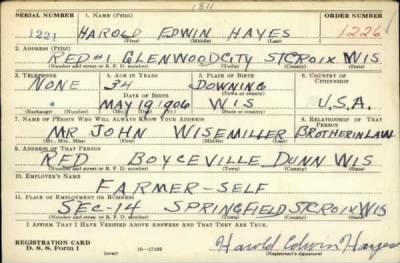 1811
SERIAL NUMBER 1. NAME (Print) ORDER NUMBER
1221 HAROLD EDWIN HAYES 1226
(First) (Middle) (Last)
2. ADDRESS (Print)
RED#1 GLENWOODCITY ST CROIX WIS
(Number and street or R. F. D. number) (Town) (County) (State)
3. TELEPHONE 4. AGE IN YEARS 5. PLACE OF BIRTH 6. COUNTRY OF CITIZENSHIP
NONE 34 DOWNING
DATE OF BIRTH (Town or county)
MAY 19 1906 WIS U.S.A.
(Exchange) (Number) (Mo.) (Day) (Yr.) (State or country)
7. NAME OF PERSON WHO WILL ALWAYS KNOW YOUR ADDRESS 8. RELATIONSHIP OF THAT PERSON
MR JOHN WISEMILLER BROTHERINLAW
(Mr., Mrs., Miss) (First) (Middle) (Last)
9. ADDRESS OF THAT PERSON
RED BOYCEVILLE DUNN WIS
(Number and street or R. F. D. number) (Town) (County) (State)
10. EMPLOYER'S NAME
FARMER-SELF
11. PLACE OF EMPLOYMENT OR BUSINESS
SEC-14 SPRINGFIELD ST CROIX WIS
(Number and street or R. F. D. number) (Town) (County) (State)
I AFFIRM THAT I HAVE VERIFIED ABOVE ANSWERS AND THAT THEY ARE TRUE.
REGISTRATION CARD
D. S. S. Form 1 16—17105 Harold Edwin Hayes
(over) (Registrant's signature)